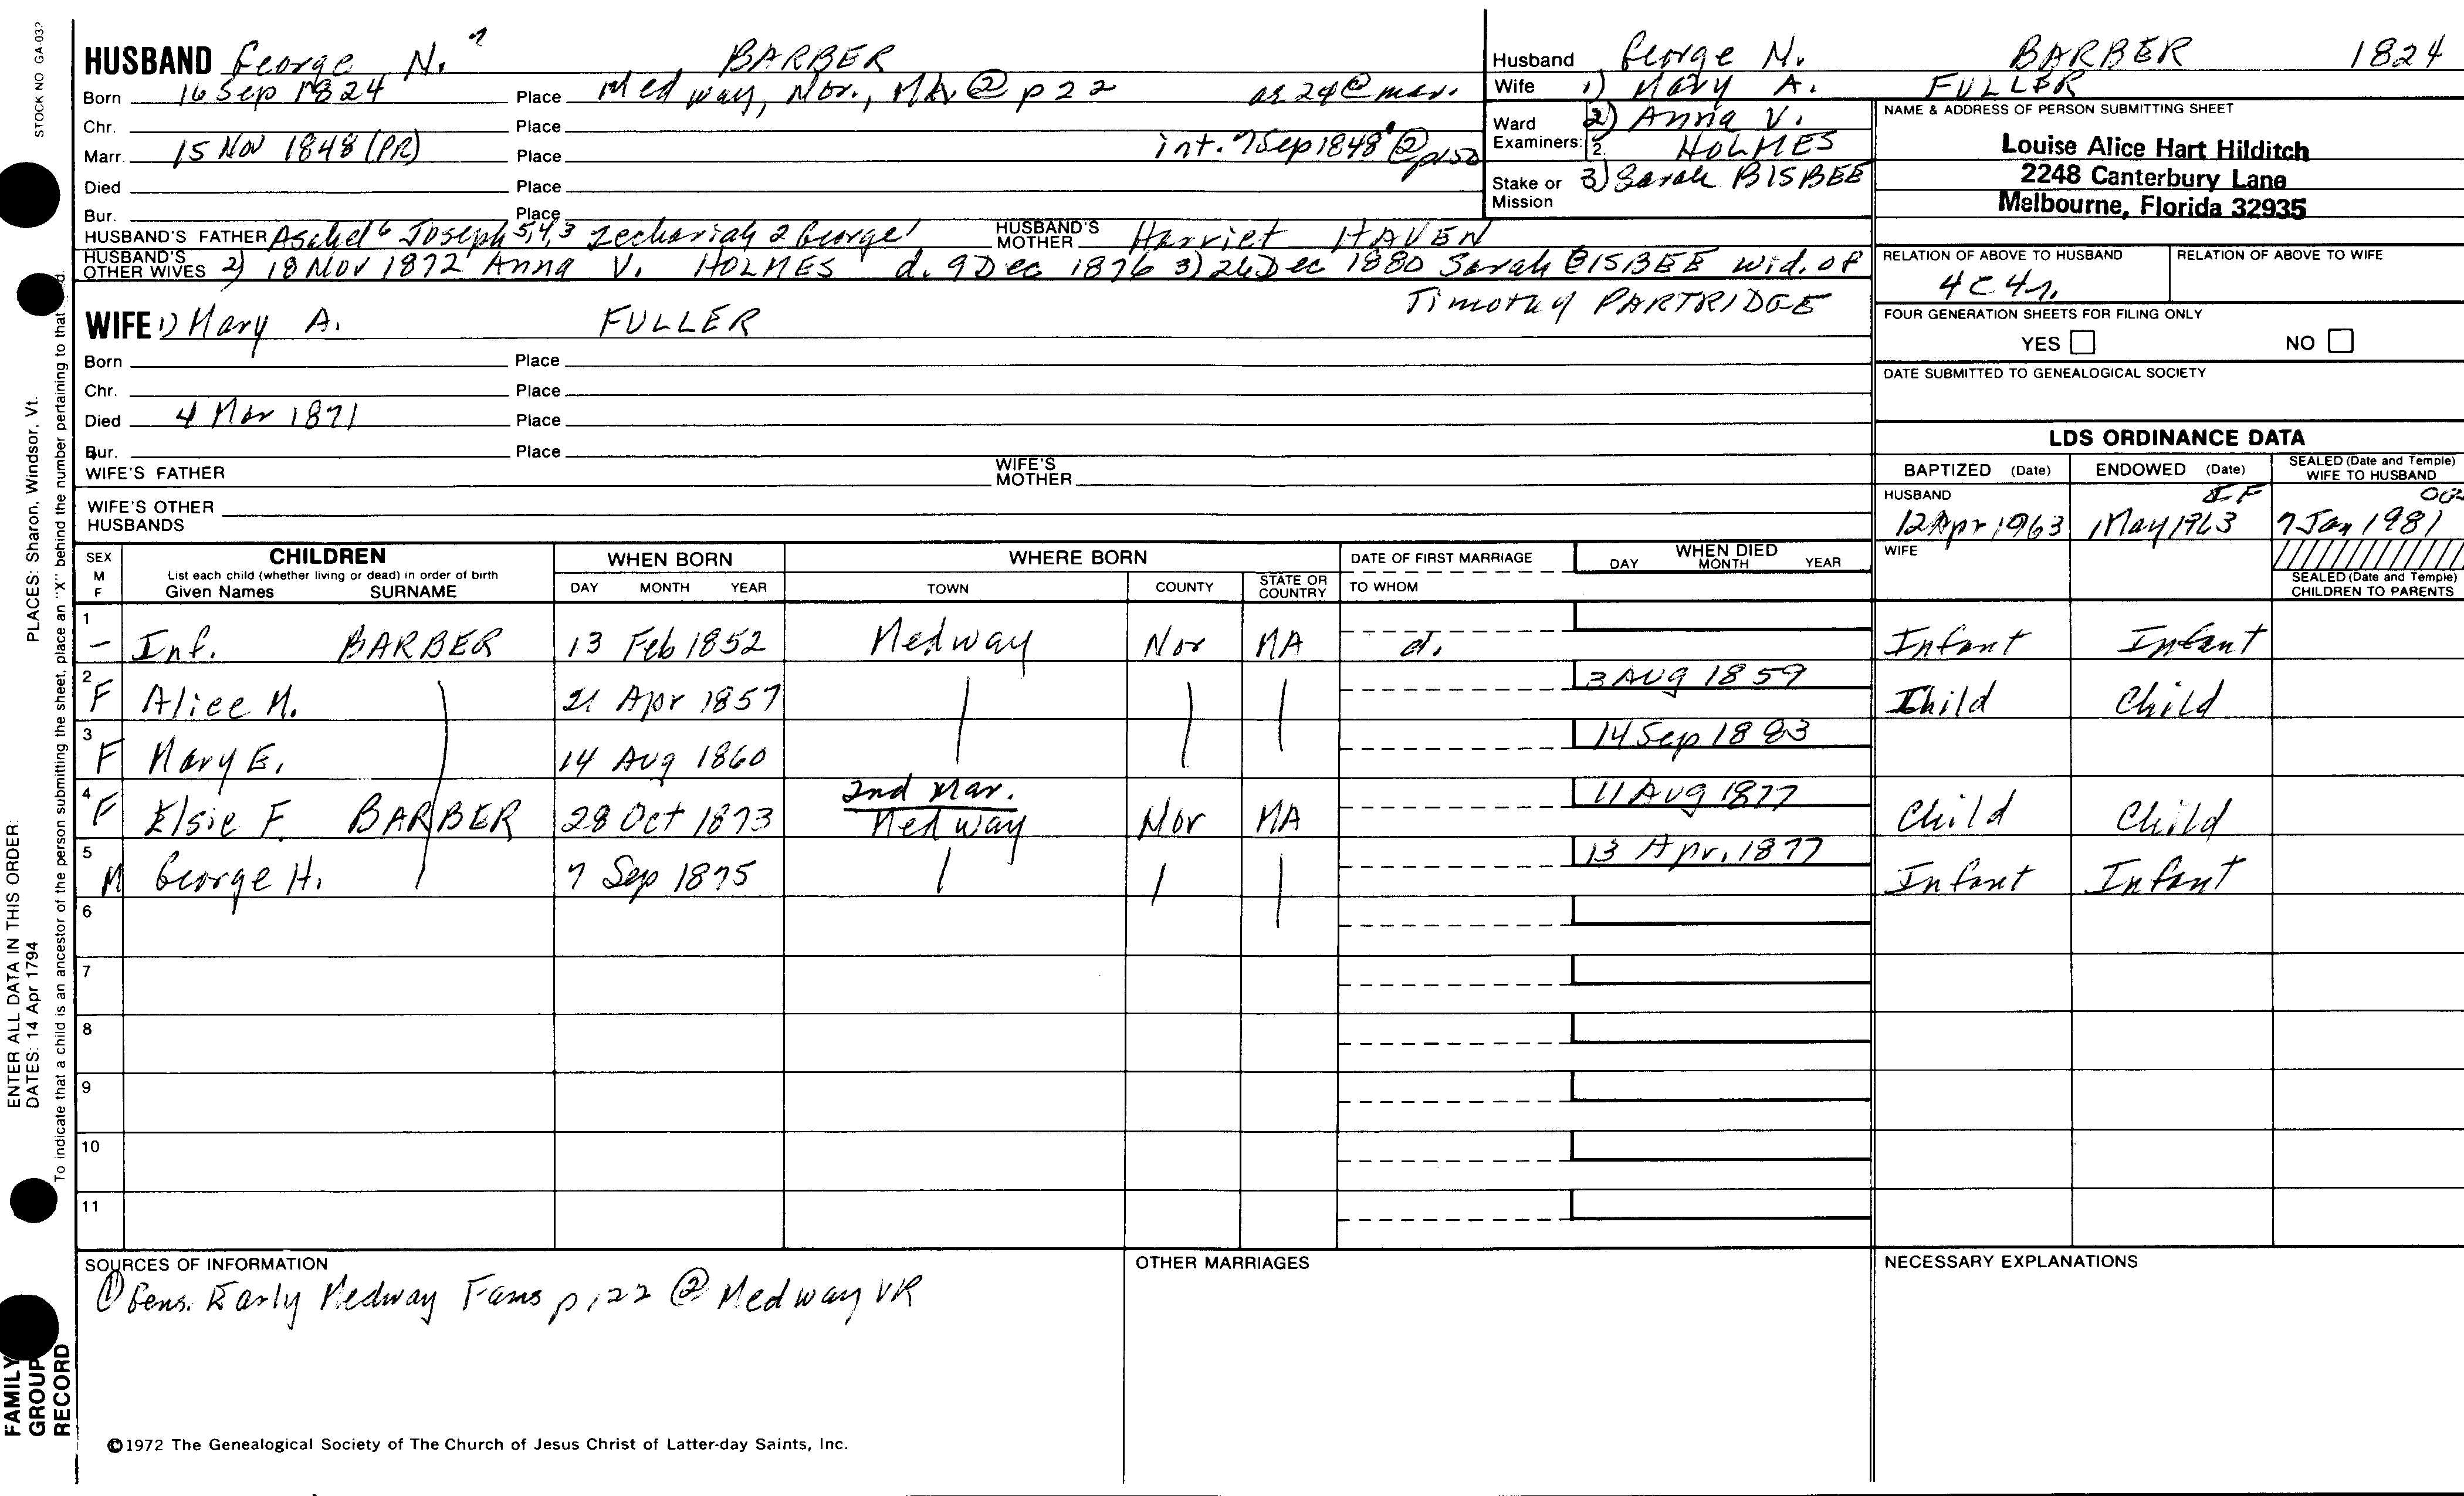 STOCK NO GA-032
HUSBAND George N. 7 BARBER
Born 16 Sep 1824 Place Medway, Nor., MA @ p 22 as 24 @ mar.
Chr. Place
Marr. 15 Nov 1848 (PR) Place int. 7 Sep 1848 ② p150
Died Place
Bur. Place
HUSBAND'S FATHER Asahel 6 Joseph 5,4,3 Zechariah 2 George 1 HUSBAND'S MOTHER Harriet HAVEN
HUSBAND'S OTHER WIVES 2) 18 Nov 1872 Anna V. HOLMES d. 9 Dec 1876 3) 26 Dec 1880 Sarah BISBEE wid. of
Timothy PARTRIDGE
WIFE 1) Mary A. FULLER
Born Place
Chr. Place
Died 4 Mar 1871 Place
Bur. Place
WIFE'S FATHER WIFE'S MOTHER
WIFE'S OTHER HUSBANDS
Husband George N. BARBER 1824
Wife 1) Mary A. FULLER
Ward 2) Anna V.
Examiners: 1. 2. HOLMES
Stake or Mission 3) Sarah BISBEE
NAME & ADDRESS OF PERSON SUBMITTING SHEET
Louise Alice Hart Hilditch
2248 Canterbury Lane
Melbourne, Florida 32935
RELATION OF ABOVE TO HUSBAND RELATION OF ABOVE TO WIFE
4C4r.
FOUR GENERATION SHEETS FOR FILING ONLY
YES NO
DATE SUBMITTED TO GENEALOGICAL SOCIETY
LDS ORDINANCE DATA
BAPTIZED (Date) ENDOWED (Date) SEALED (Date and Temple) WIFE TO HUSBAND
HUSBAND IF
12 Apr 1963 1 May 1963 7 Jan 1981
WIFE
SEALED (Date and Temple) CHILDREN TO PARENTS
SEX M F CHILDREN WHEN BORN WHERE BORN DATE OF FIRST MARRIAGE WHEN DIED
List each child (whether living or dead) in order of birth
Given Names SURNAME DAY MONTH YEAR TOWN COUNTY STATE OR COUNTRY TO WHOM DAY MONTH YEAR
1 – Inf. BARBER 13 Feb 1852 Medway Nor MA d. Infant Infant
2 F Alice M. 21 Apr 1857 3 Aug 1859 Child Child
3 F Mary E. 14 Aug 1860 14 Sep 1883
2nd Mar.
4 F Elsie F. BARBER 28 Oct 1873 Medway Nor MA 11 Aug 1877 Child Child
5 M George H. 7 Sep 1875 13 Apr. 1877 Infant Infant
6
7
8
9
10
11
SOURCES OF INFORMATION OTHER MARRIAGES NECESSARY EXPLANATIONS
① Gens. Early Medway Fams p.22 ② Medway VR
©1972 The Genealogical Society of The Church of Jesus Christ of Latter-day Saints, Inc.
FAMILY GROUP RECORD
ENTER ALL DATA IN THIS ORDER:
DATES: 14 Apr 1794
PLACES: Sharon, Windsor, Vt.
To indicate that a child is an ancestor of the person submitting the sheet, place an "X" behind the number pertaining to that